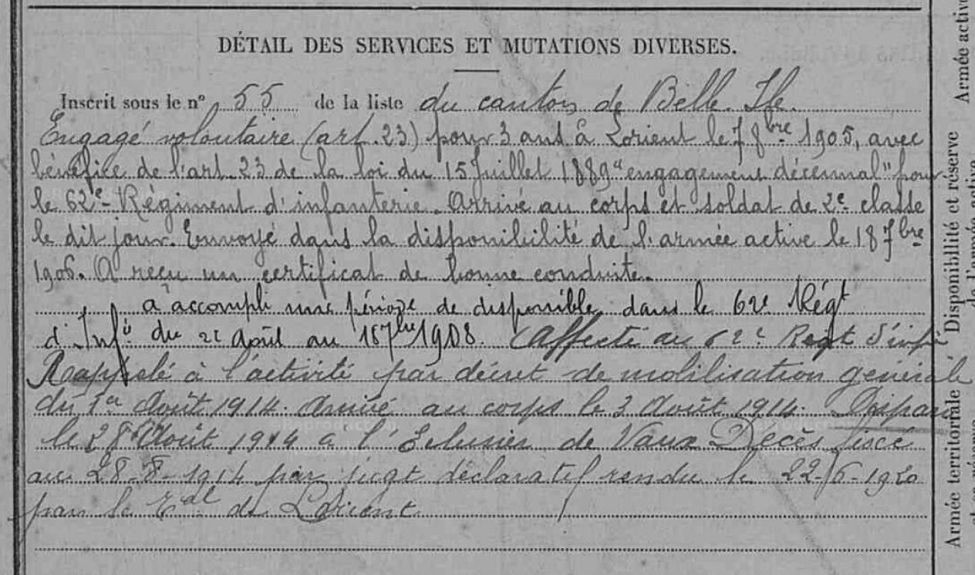 DÉTAIL DES SERVICES ET MUTATIONS DIVERSES.
Inscrit sous le n° 55 de la liste du canton de Belle-Ile.
Engagé volontaire (art. 23) pour 3 ans à Lorient le 7 8bre 1905, avec
bénéfice de l'art. 23 de la loi du 15 Juillet 1889 "engagement décennal" pour
le 62e Régiment d'infanterie. Arrivé au corps et soldat de 2e classe
le dit jour. Envoyé dans la disponibilité de l'armée active le 18 7bre
1906. A reçu un certificat de bonne conduite.
a accompli une période de disponible dans le 62e Régt
d'Inf.ie du 21 Août au 16 7bre 1908. Affecté au 62e Regt d'infie
Rappelé à l'activité par décret de mobilisation générale
du 1er Août 1914. Arrivé au corps le 3 Août 1914. Disparu
le 28 Août 1914 a l'Eclusier de Vaux Decès fixé
au 28-8-1914 par jugt déclaratif rendu le 22-6-1920
par le Tal de Lorient
Armée active
Disponibilité et réserve
Armée territoriale